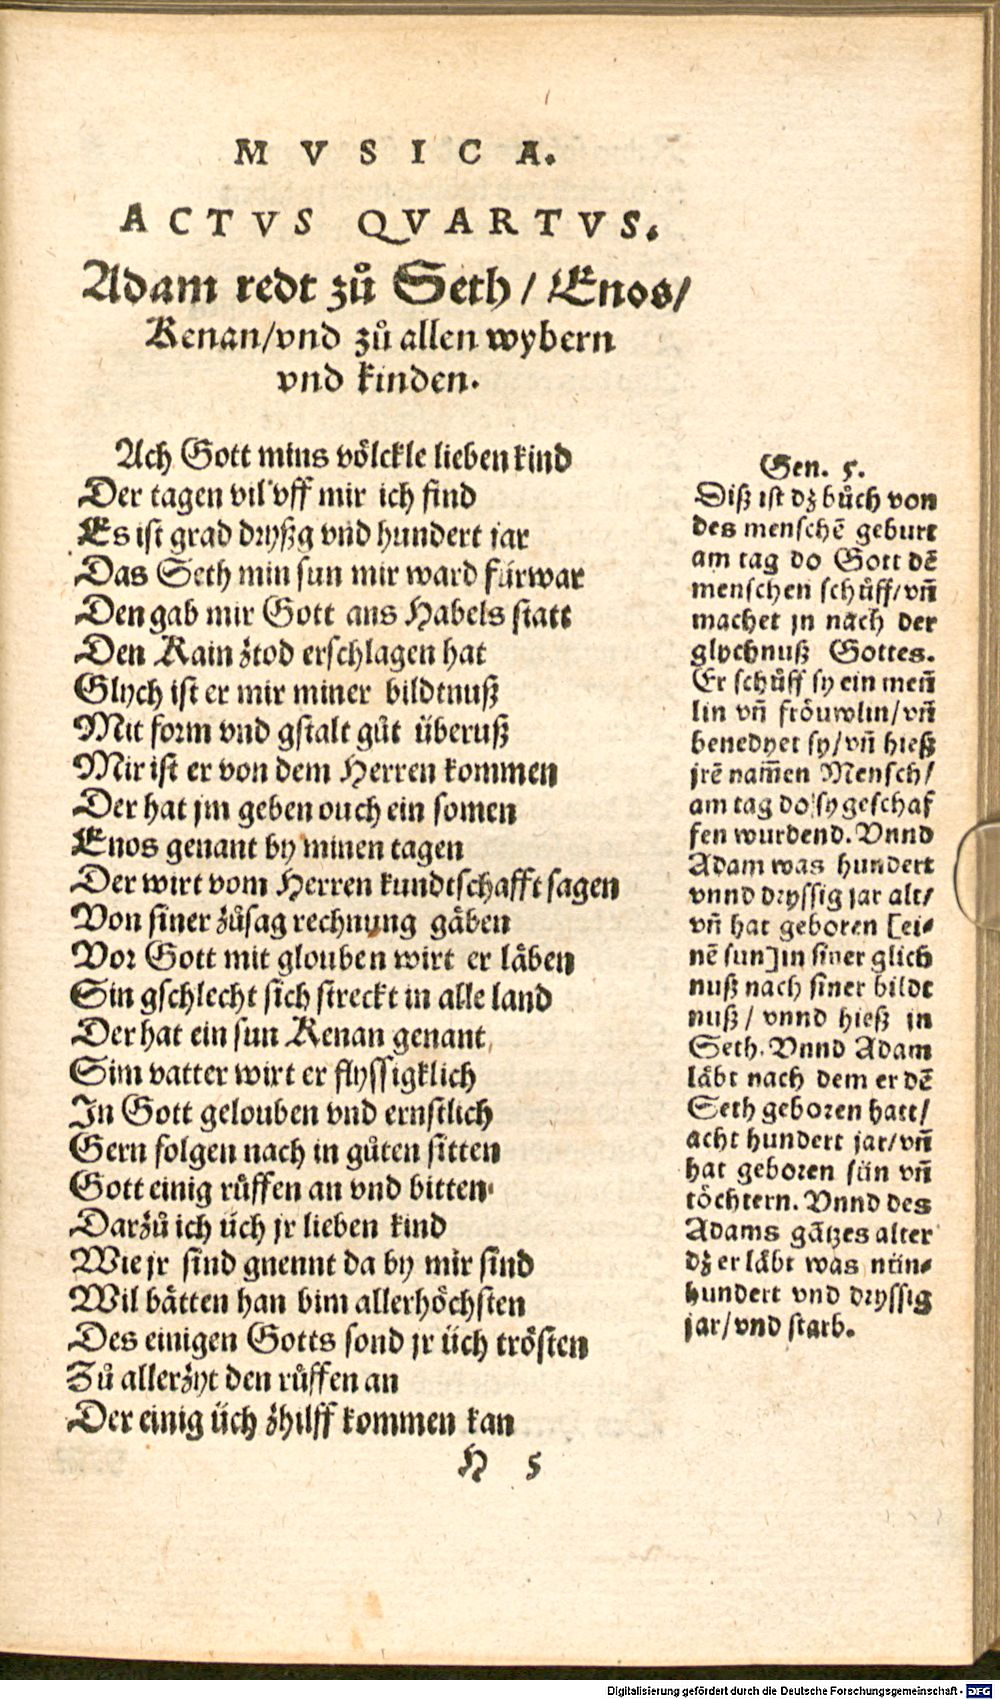 MVSICA.
ACTVS QVARTVS.
Adam redt zů Seth / Enos /
Kenan / vnd zů allen wybern
vnd kinden.
Ach Gott mins völckle lieben kind
Der tagen vil vff mir ich find
Es ist grad dryßg vnd hundert jar
Das Seth min sun mir ward fürwar
Den gab mir Gott ans Habels statt
Den Kain ztod erschlagen hat
Glych ist er mir miner bildtnuß
Mit form vnd gstalt gůt überuß
Mir ist er von dem Herren kommen
Der hat jm geben ouch ein somen
Enos genant by minen tagen
Der wirt vom Herren kundtschafft sagen
Von siner zůsag rechnung gäben
Vor Gott mit glouben wirt er läben
Sin gschlecht sich streckt in alle land
Der hat ein sun Kenan genant
Sim vatter wirt er flyssigklich
In Gott gelouben vnd ernstlich
Gern folgen nach in gůten sitten
Gott einig růffen an vnd bitten
Darzů ich üch jr lieben kind
Wie jr sind gnennt da by mir sind
Wil bätten han bim allerhöchsten
Des einigen Gotts sond jr üch trösten
Zů allerzyt den růffen an
Der einig üch zhilff kommen kan
H 5
Gen. 5.
Diß ist dz bůch von
des menschē geburt
am tag do Gott dē
menschen schůff / vn̄
machet jn nach der
glychnuß Gottes.
Er schůff sy ein men̄
lin vn̄ fröuwlin / vn̄
benedyet sy / vn̄ hieß
jrē nam̄en Mensch /
am tag do sy geschaf
fen wurdend. Vnnd
Adam was hundert
vnnd dryssig jar alt /
vn̄ hat geboren [ei⸗
nē sun] in siner glich
nuß nach siner bildt
nuß / vnnd hieß jn
Seth. Vnnd Adam
läbt nach dem er dē
Seth geboren hatt /
acht hundert jar / vn̄
hat geboren sün vn̄
töchtern. Vnnd des
Adams gātzes alter
dz er läbt was nün⸗
hundert vnd dryssig
jar / vnd starb.
Digitalisierung gefördert durch die Deutsche Forschungsgemeinschaft - DFG